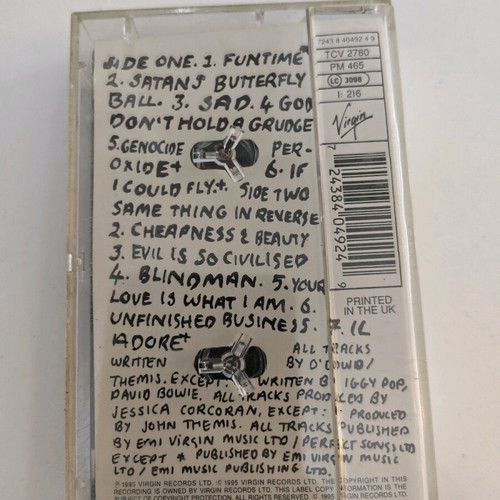 SIDE ONE. 1. FUNTIME*
2. SATANS BUTTERFLY
BALL. 3. SAD. 4 GOD
DON'T HOLD A GRUDGE
5. GENOCIDE PER-
OXIDE+ 6. IF
I COULD FLY.+. SIDE TWO
SAME THING IN REVERSE
2. CHEAPNESS & BEAUTY
3. EVIL IS SO CIVILISED
4. BLINDMAN. 5. YOUR
LOVE IS WHAT I AM. 6.
UNFINISHED BUSINESS. 7. IL
ADORE+
ALL TRACKS
WRITTEN BY O'DOWD/
THEMIS. EXCEPT: WRITTEN BY IGGY POP,
DAVID BOWIE. ALL TRACKS PRODUCED BY
JESSICA CORCORAN, EXCEPT: + PRODUCED
BY JOHN THEMIS. ALL TRACKS PUBLISHED
BY EMI VIRGIN MUSIC LTD / PERFECT SONGS LTD
EXCEPT * PUBLISHED BY EMI VIRGIN MUSIC
LTD / EMI MUSIC PUBLISHING LTD.
℗ 1995 VIRGIN RECORDS LTD. © 1995 VIRGIN RECORDS LTD. THE COPYRIGHT IN THIS
RECORDING IS OWNED BY VIRGIN RECORDS LTD. THIS LABEL COPY INFORMATION IS THE
SUBJECT OF COPYRIGHT PROTECTION. ALL RIGHTS RESERVED. © 1995 VIRGIN RECORDS
7243 8 40492 4 9
TCV 2780
PM 465
LC 3098
I: 216
Virgin
7 24384 04924 9
PRINTED
IN THE UK